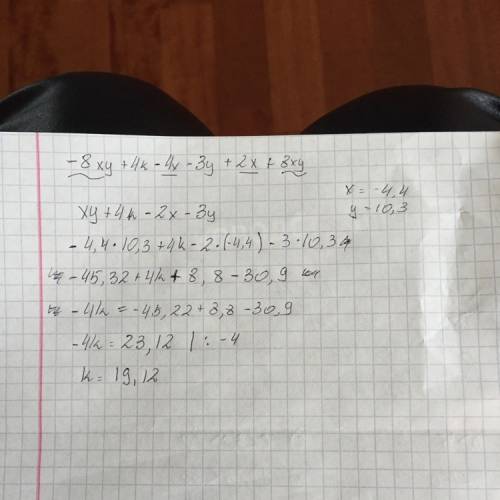 -8xy+4k-4x-3y+2x+8xy
x=-4,4
y-10,3
xy+4k-2x-3y
-4,4·10,3+4k-2·(-4,4)-3·10,3
-45,32+4k+8,8-30,9
-4k=-45,22+8,8-30,9
-4k=23,12 |:-4
k=19,12